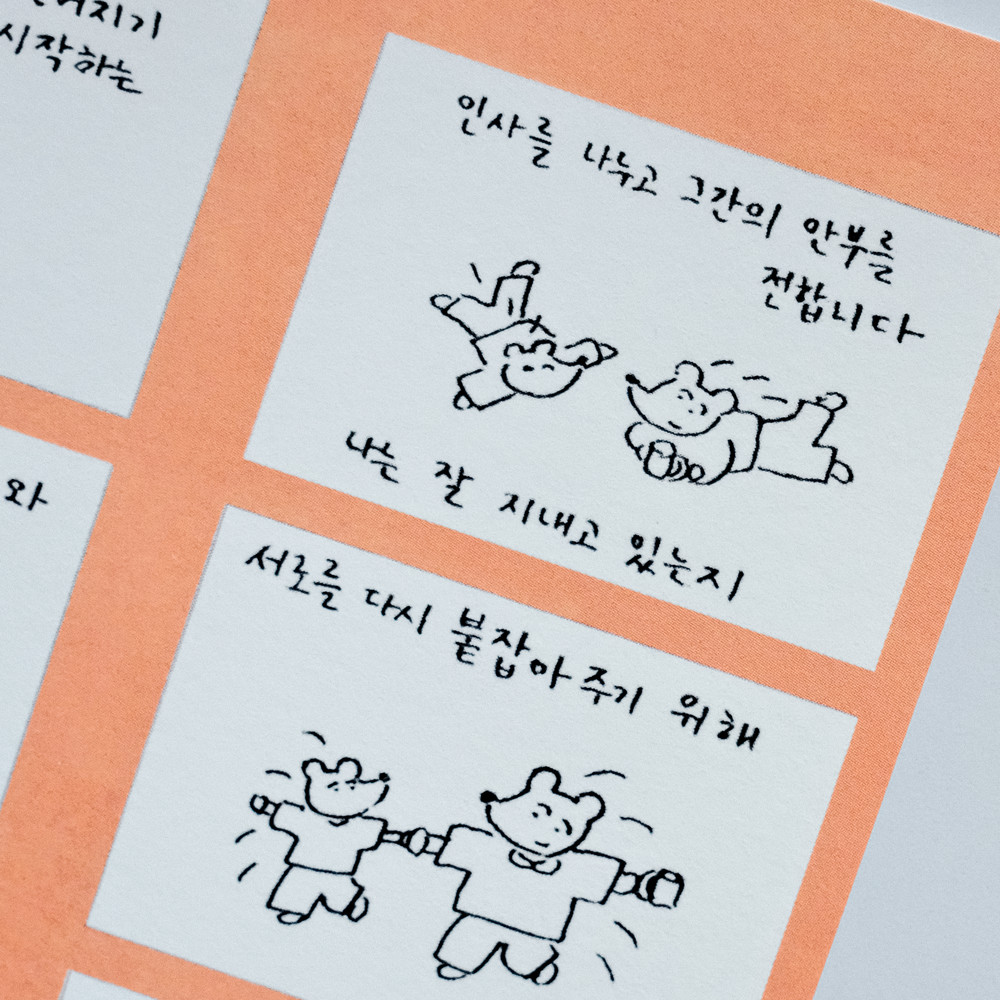 시작하는
와
인사를 나누고 그간의 안부를
전합니다
나는 잘 지내고 있는지
서로를 다시 붙잡아 주기 위해